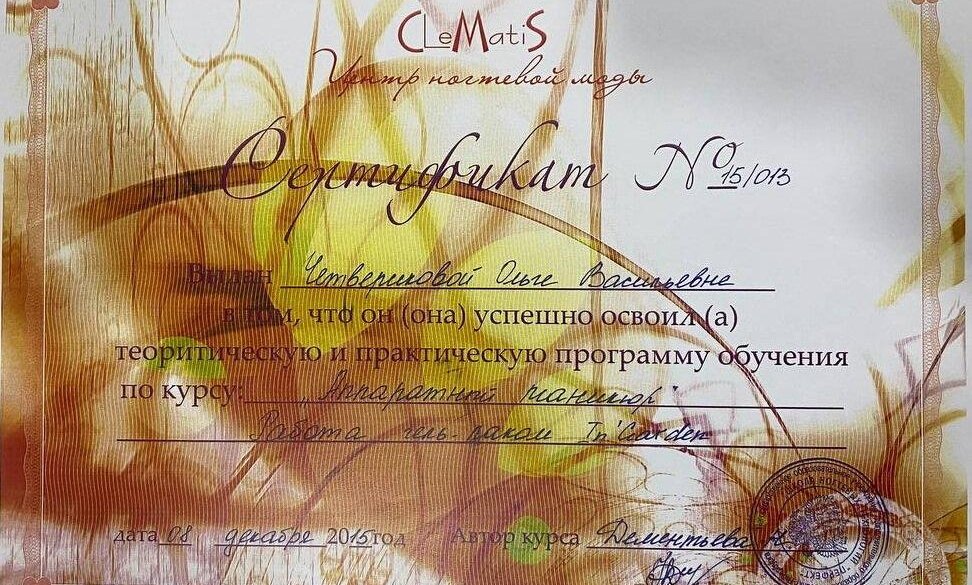 CLeMatiS
Центр ногтевой моды
Сертификат № 15/013
Выдан Четвериковой Ольге Васильевне
в том, что он (она) успешно освоил (а)
теоритическую и практическую программу обучения
по курсу: „Аппаратный маникюр"
Работа гель-лаком In'Garden
дата 08 декабря 2015 год Автор курса Дементьева